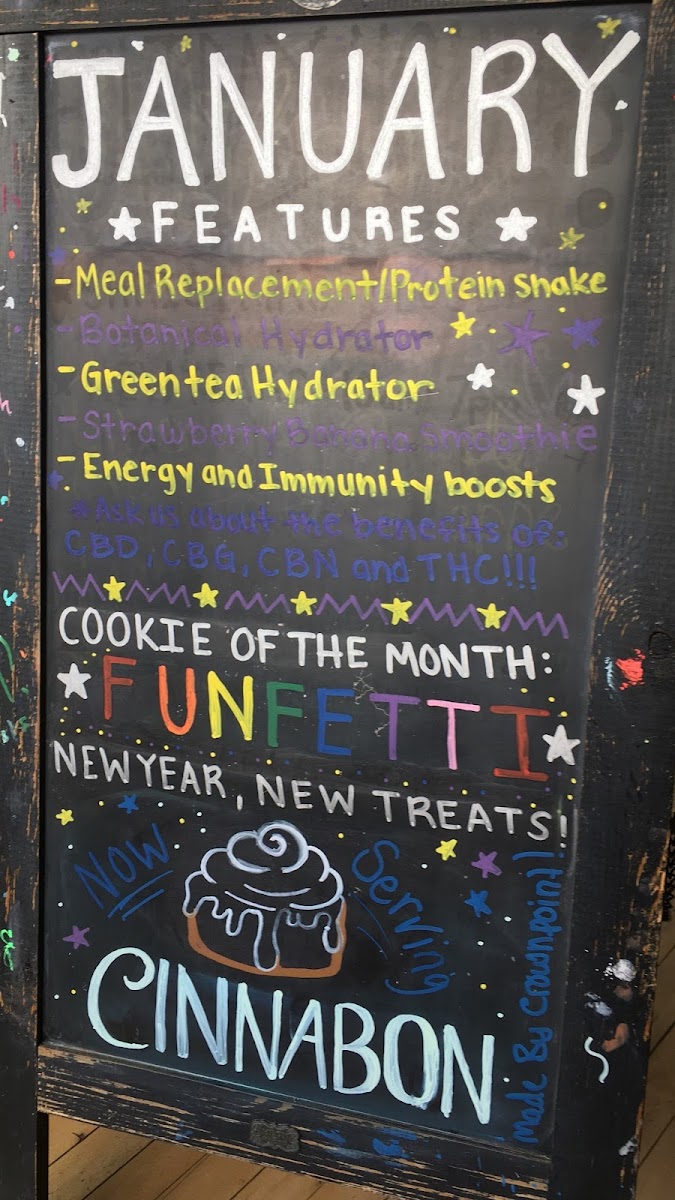 JANUARY
★FEATURES★
-Meal Replacement/Protein shake
-Botanical Hydrator
-Green tea Hydrator
-Strawberry Banana Smoothie
-Energy and Immunity boosts
*Ask us about the benefits of:
CBD, CBG, CBN and THC!!!
COOKIE OF THE MONTH:
FUNFETTI
NEW YEAR, NEW TREATS!
NOW Serving
CINNABON
Made By Crownpoint!